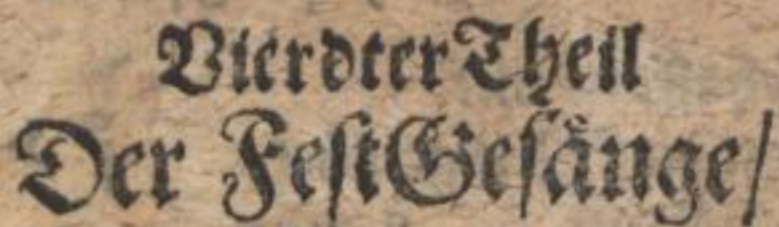 Vierdter Theil
Der FestGesänge/